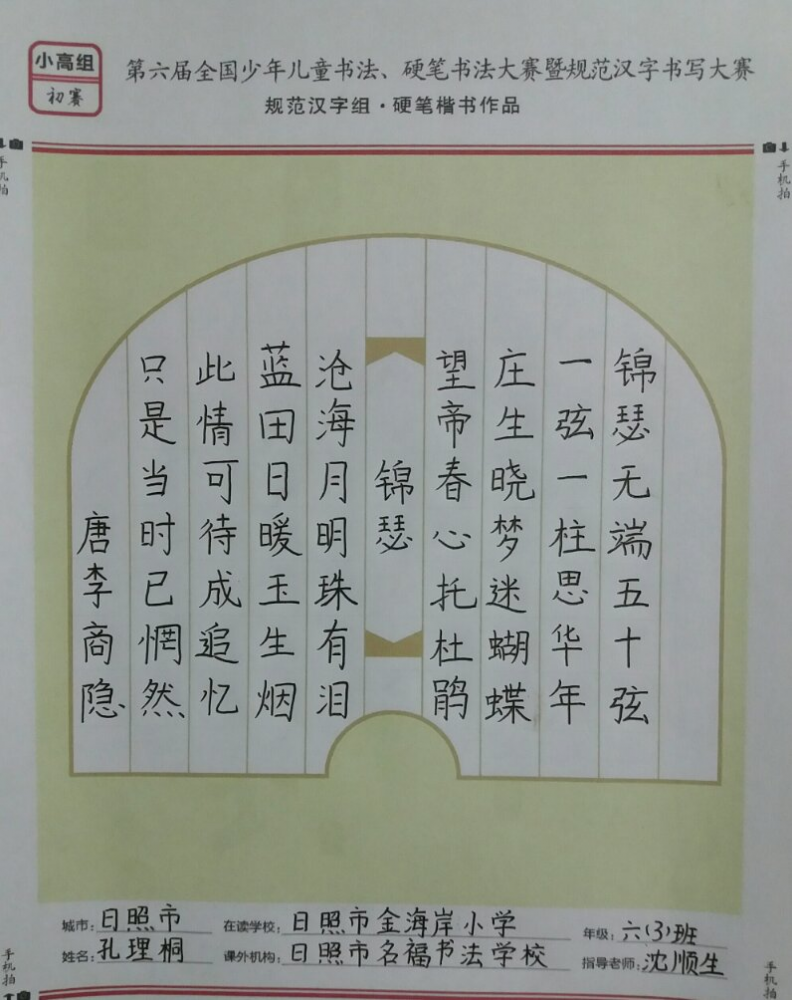 小高组
初赛
第六届全国少年儿童书法、硬笔书法大赛暨规范汉字书写大赛
规范汉字组·硬笔楷书作品
手机拍
手机拍
锦瑟无端五十弦
一弦一柱思华年
庄生晓梦迷蝴蝶
望帝春心托杜鹃
锦瑟
沧海月明珠有泪
蓝田日暖玉生烟
此情可待成追忆
只是当时已惘然
唐李商隐
城市：日照市 在读学校：日照市金海岸小学 年级：六(3)班
姓名：孔理桐 课外机构：日照市名福书法学校 指导老师：沈顺生
手机拍
手机拍